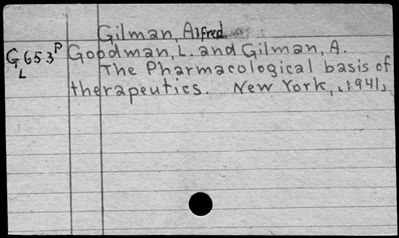 Gilman, Alfred
G653P Goodman, L. and Gilman, A.
L The Pharmacological basis of
therapeutics. New York, 1941,